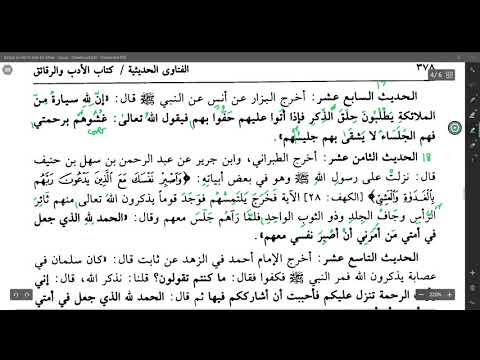 الفتاوى الحديثية / كتاب الأدب والرقائق
٣٧٨
4/6
الحديث السابع عشر: أخرج البزار عن أنس عن النبي ﷺ قال: «إنَّ لِلَّهِ سيارةً مِنَ
الملائكةِ يَطْلُبُونَ حِلَقَ الذِكرِ فإذا أتَوا عليهم حَفُّوا بهم فيقول اللهُ تعالىٰ: غَشُّوهُم برحمتي
فهم الجُلَساءُ لا يَشقىٰ بهم جليسُهُم».
18 الحديث الثامن عشر: أخرج الطبراني، وابن جرير عن عبد الرحمن بن سهل بن حنيف
قال: نزلتْ على رسولِ اللهِ ﷺ وهو في بعض أبياته: ﴿وَاصْبِرْ نَفْسَكَ مَعَ الَّذِينَ يَدْعُونَ رَبَّهُم
بِالْغَدَوٰةِ وَالْعَشِيِّ﴾ [الكهف: ٢٨] الآية فَخَرَج يَلْتَمِسُهُم فَوَجَدَ قوماً يذكرون اللهَ تعالىٰ منهم ثَائِرُ
الرَّأسِ وجَافُ الجِلدِ وذو الثوبِ الواحِدِ فلمَّا رَآهُم جَلَسَ معهم وقال: «الحمد للهِ الذي جعل
في أمتي من أمَرَني أن أَصبِرَ نفسي معهم».
الحديث التاسع عشر: أخرج الإمام أحمد في الزهد عن ثابت قال: «كان سلمان في
عصابة يذكرون الله فمر النبي ﷺ فكفوا فقال: ما كنتم تقولون؟ قلنا: نذكر الله، قال: إني
الرحمة تنزل عليكم فأحببت أن أشارككم فيها ثم قال: الحمد لله الذي جعل في أمتي